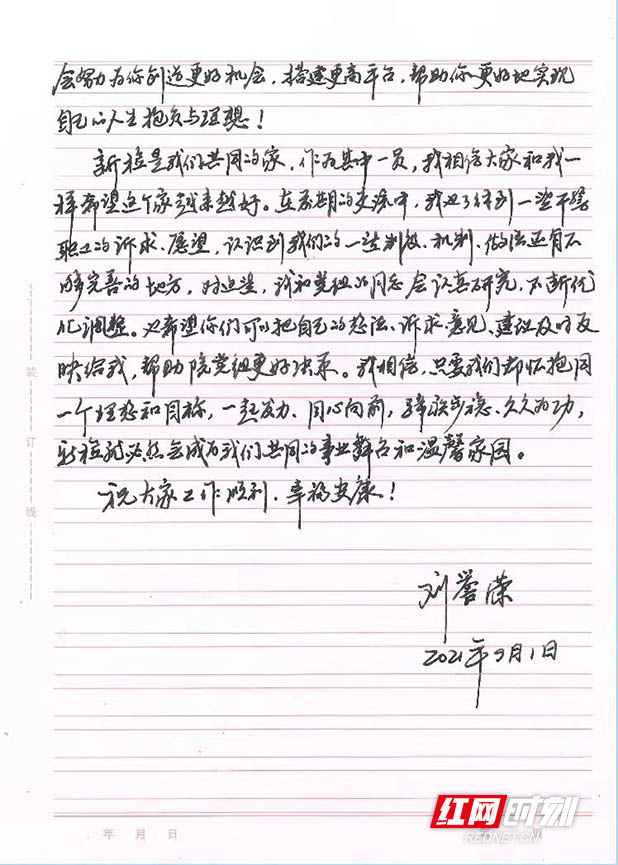 会努力为你创造更好机会，搭建更高平台，帮助你更好地实现
自己的人生抱负与理想！
新检是我们共同的家，作为其中一员，我相信大家和我一
样希望这个家越来越好。在前期的交流中，我也了解到一些干警
职工的诉求、愿望，认识到我们的一些制度、机制、做法还有不
够完善的地方，对这些，我和党组的同志会认真研究，不断优
化调整。也希望你们可以把自己的想法、诉求、意见、建议及时反
映给我，帮助院党组更好决策。我相信，只要我们都怀抱同
一个理想和目标，一起发力、同心向前，驿族步稳、久久为功，
新检就必然会成为我们共同的事业舞台和温馨家园。
祝大家工作顺利、幸福安康！
刘誉荣
2021年9月1日
装
订
线
年 月 日
红网时刻
REDNET.CN